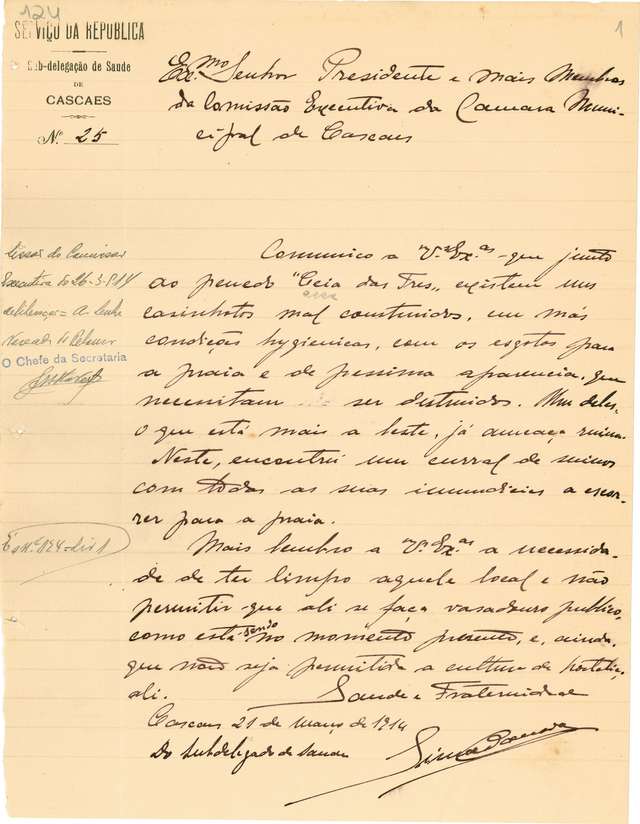 124
1
SERVIÇO DA REPUBLICA
Sub-delegação de Saude
DE
CASCAES
N.º 25
Ex.mo Senhor Presidente e mais Membros
da Comissão Executiva da Camara Muni-
cipal de Cascaes
Comunico a V.as Ex.as que junto
ao penedo "Ceia das Tres", existem uns
casinhotos mal construidos, em más
condições hygienicas, com os esgotos para
a praia e de pessima aparencia, que
necessitam ser destruidos. Um deles,
o que está mais a leste, já ameaça ruina.
Neste, encontrei um curral de suinos
com todas as suas imundicies a escor-
rer para a praia.
Mais lembro a V.as Ex.as a necessida-
de de ter limpo aquele local e não
permitir que ali se faça vasadouro publico,
como está sendo no momento presente, e, ainda,
que não seja permitida a cultura de hortaliça
ali.
Saude e Fraternidade
Cascaes 21 de Março de 1914
Do Subdelegado de Saude
Executiva de 26-3-914
O Chefe da Secretaria